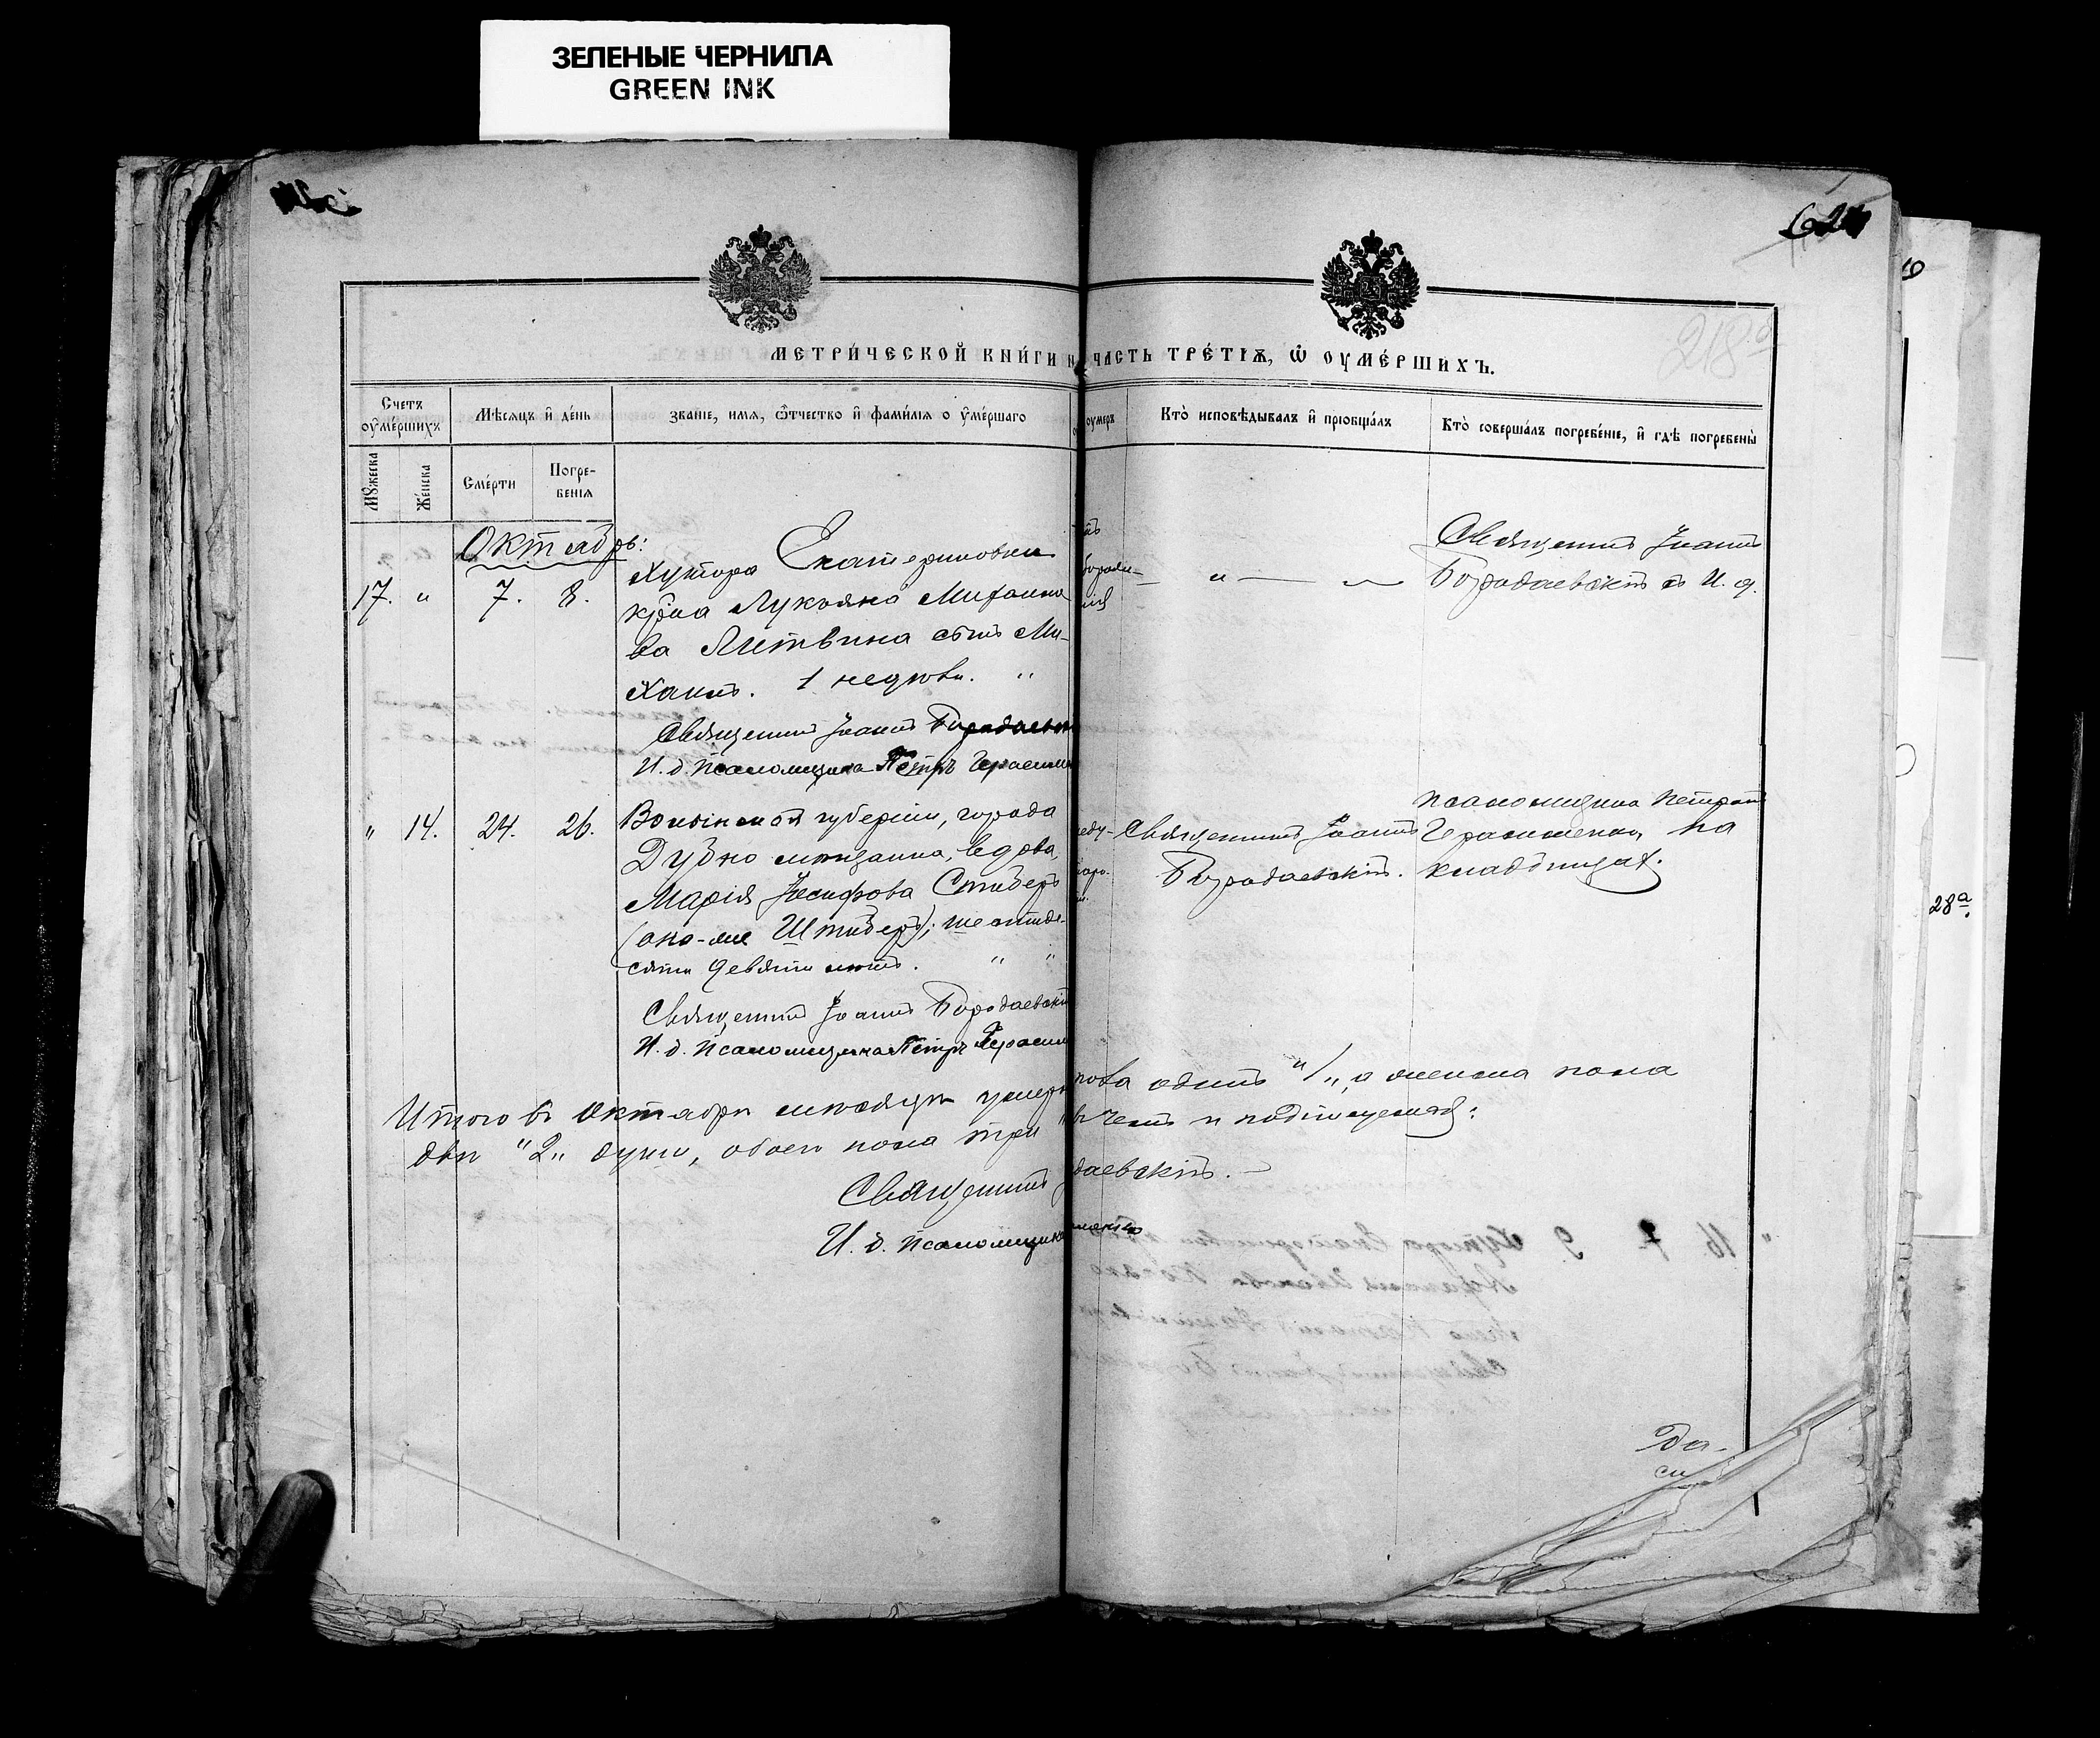 ЗЕЛЕНЫЕ ЧЕРНИЛА
GREEN INK
218
МЕТРИ́ЧЕСКОЙ КНИ́ГИ ЧАСТЬ ТРЕ́ТІѦ, Ѡ ОУМЕ́РШИХЪ.
Счетъ оумéршихъ
Мѣсяцъ и҆ де́нь
Званіе, имя, ѻ҆́тчество и҆ фами́лія о у҆ме́ршаго
оумеръ
Кто̀ исповѣ́дывалъ и҆ пріобща́лъ
Кто̀ соверша́лъ погребе́ніе, и҆ гдѣ̀ погребены̀
Мꙋжеска
Же́нска
Сме́рти
Погре-
бенія
Октябрь:
17. " 7. 8.
Хутора Екатериновки
кр̃на Лукьяна Михаило
ва Литвина сынъ Ми-
хаилъ. 1 недѣли. "
Священникъ Іоаннъ
Бородаевскій съ И. д.
Священникъ Іоаннъ Бородаевск
И. д. Псаломщика Петръ Герасим
" 14. 24. 26.
Волынской губерніи, города
Дубно мѣщанка, вдова,
Марія Іосифова Стиберъ
(она-же Штиберъ); шестиде-
сяти девяти лѣтъ. " "
Священникъ Іоаннъ
Бородаевскій.
псаломщика Петромъ
Герасименко, на
кладбищѣ.
Священникъ Іоаннъ Бородаевскій
И. д. Псаломщика Петръ Герасим
Итого въ Октябрѣ мѣсяцѣ умерло
пола одинъ "1", а женска пола
двѣ "2" души, обоего пола три
Священникъ
даевскій.
И. д. Псаломщика
менко
28а.